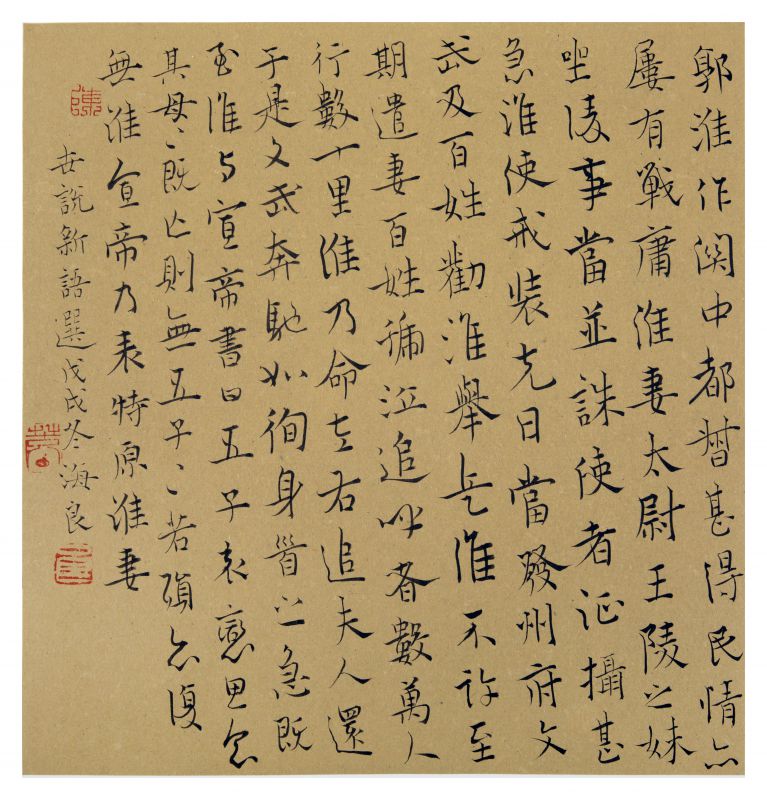 郭淮作関中都督甚得民情亦
屢有戰庸淮妻太尉王陵之妹
坐淩事當並誅使者征攝甚
急淮使戒裝克日當發州府文
武及百姓勸淮舉兵淮不許至
期遣妻百姓號泣追呼者數萬人
行數十里淮乃命左右追夫人還
于是文武奔馳如徇身首之急既
至淮与宣帝書曰五子哀戀思念
其母〻既亡則無五子〻若殞亦復
無淮宣帝乃表特原淮妻
世說新語選戊戌冬海良
陳